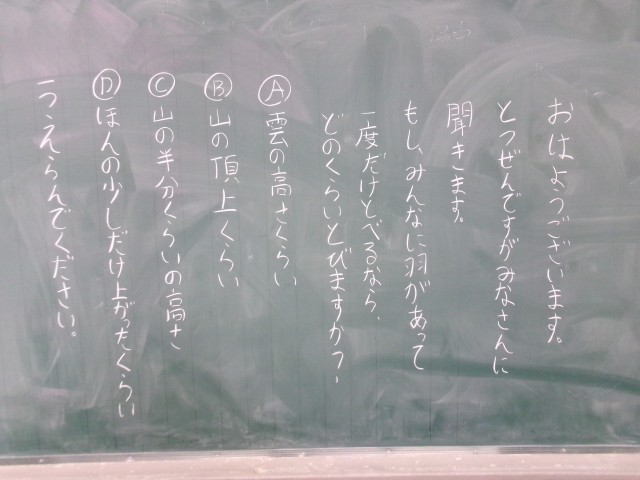 おはようございます。
とつぜんですがみなさんに
聞きます。
もし、みんなに羽があって
一度だけとべるなら、
どのくらいとびますか?
Ⓐ雲の高さくらい
Ⓑ山の頂上くらい
Ⓒ山の半分くらいの高さ
Ⓓほんの少しだけ上がったくらい
一つえらんでください。